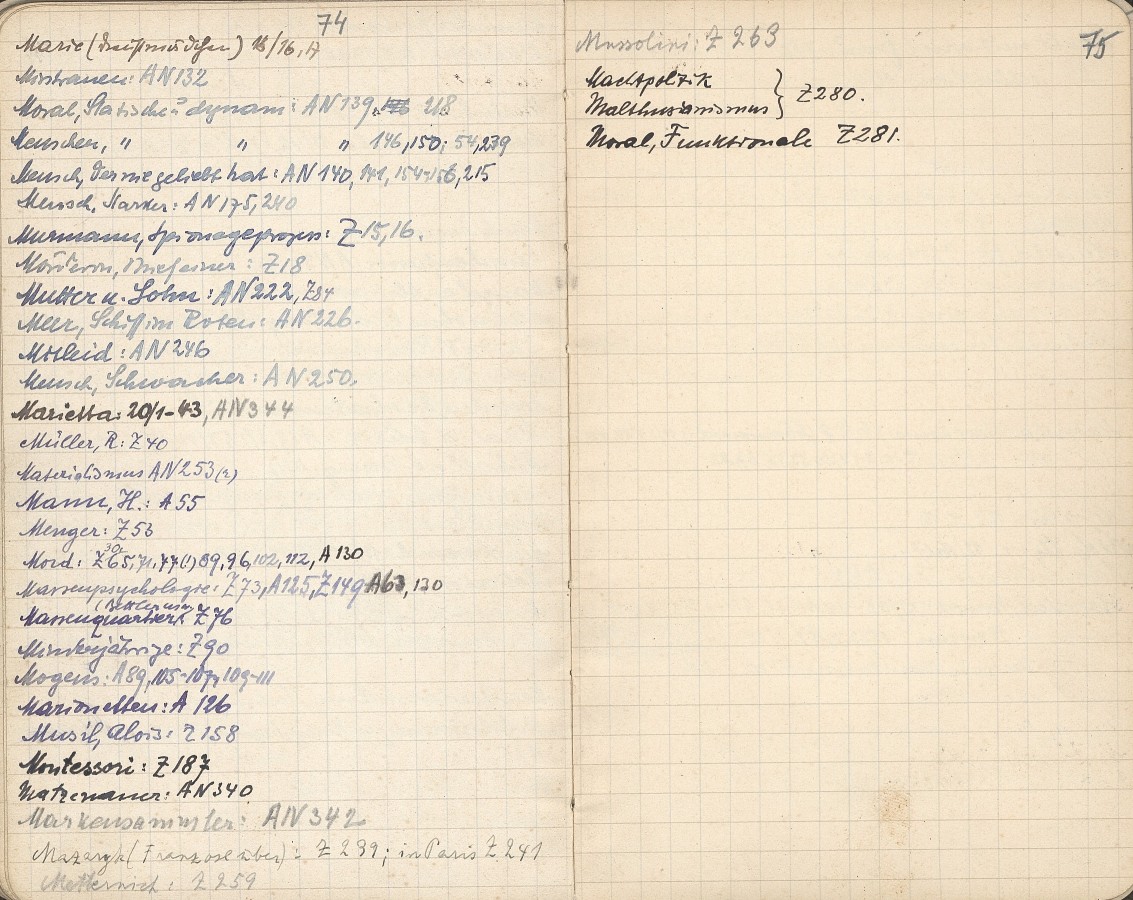 74
Marie (Dreißmädchen) 16/16, 17
Misstrauen: AN 132
Moral, Statische u. dynam: AN 139, 218
Menschen, " " " 146, 150; 54, 239
Mensch, der nie geliebt hat: AN 140, 141, 154-156, 215
Mensch, Starker: AN 175, 240
Murmann, Spionageprozess: Z 15, 16.
Mörderin, Brief einer: Z 18
Mutter u. Sohn: AN 222, Z84
Meer, Schiff im Roten: AN 226.
Mitleid: AN 246
Mensch, Schwacher: AN 250.
Marietta: 20/1-43, AN 344
Müller, R: Z 40
Materialismus AN 253 (2)
Mann, H.: A 55
Menger: Z 53
Mord: Z 30, 65, 71, 77(!) 89, 96, 102, 112, A 130
Massenpsychologie: Z 73, A 125, Z 149 A 63, 130
Massenquartier (Bettler usw) Z 76
Minderjährige: Z 90
Mogens: A 89, 105-107, 109-111
Marionetten: A 126
Musil, Alois: Z 158
Montessori: Z 187
Matzenauer: AN 340
Markensammler: AN 342
Mazaryk (Franzose über): Z 239; in Paris Z 241
Metternich: Z 259
75
Mussolini: Z 263
Machtpolitik
Malthusianismus } Z 280.
Moral, Funktionale Z 281.